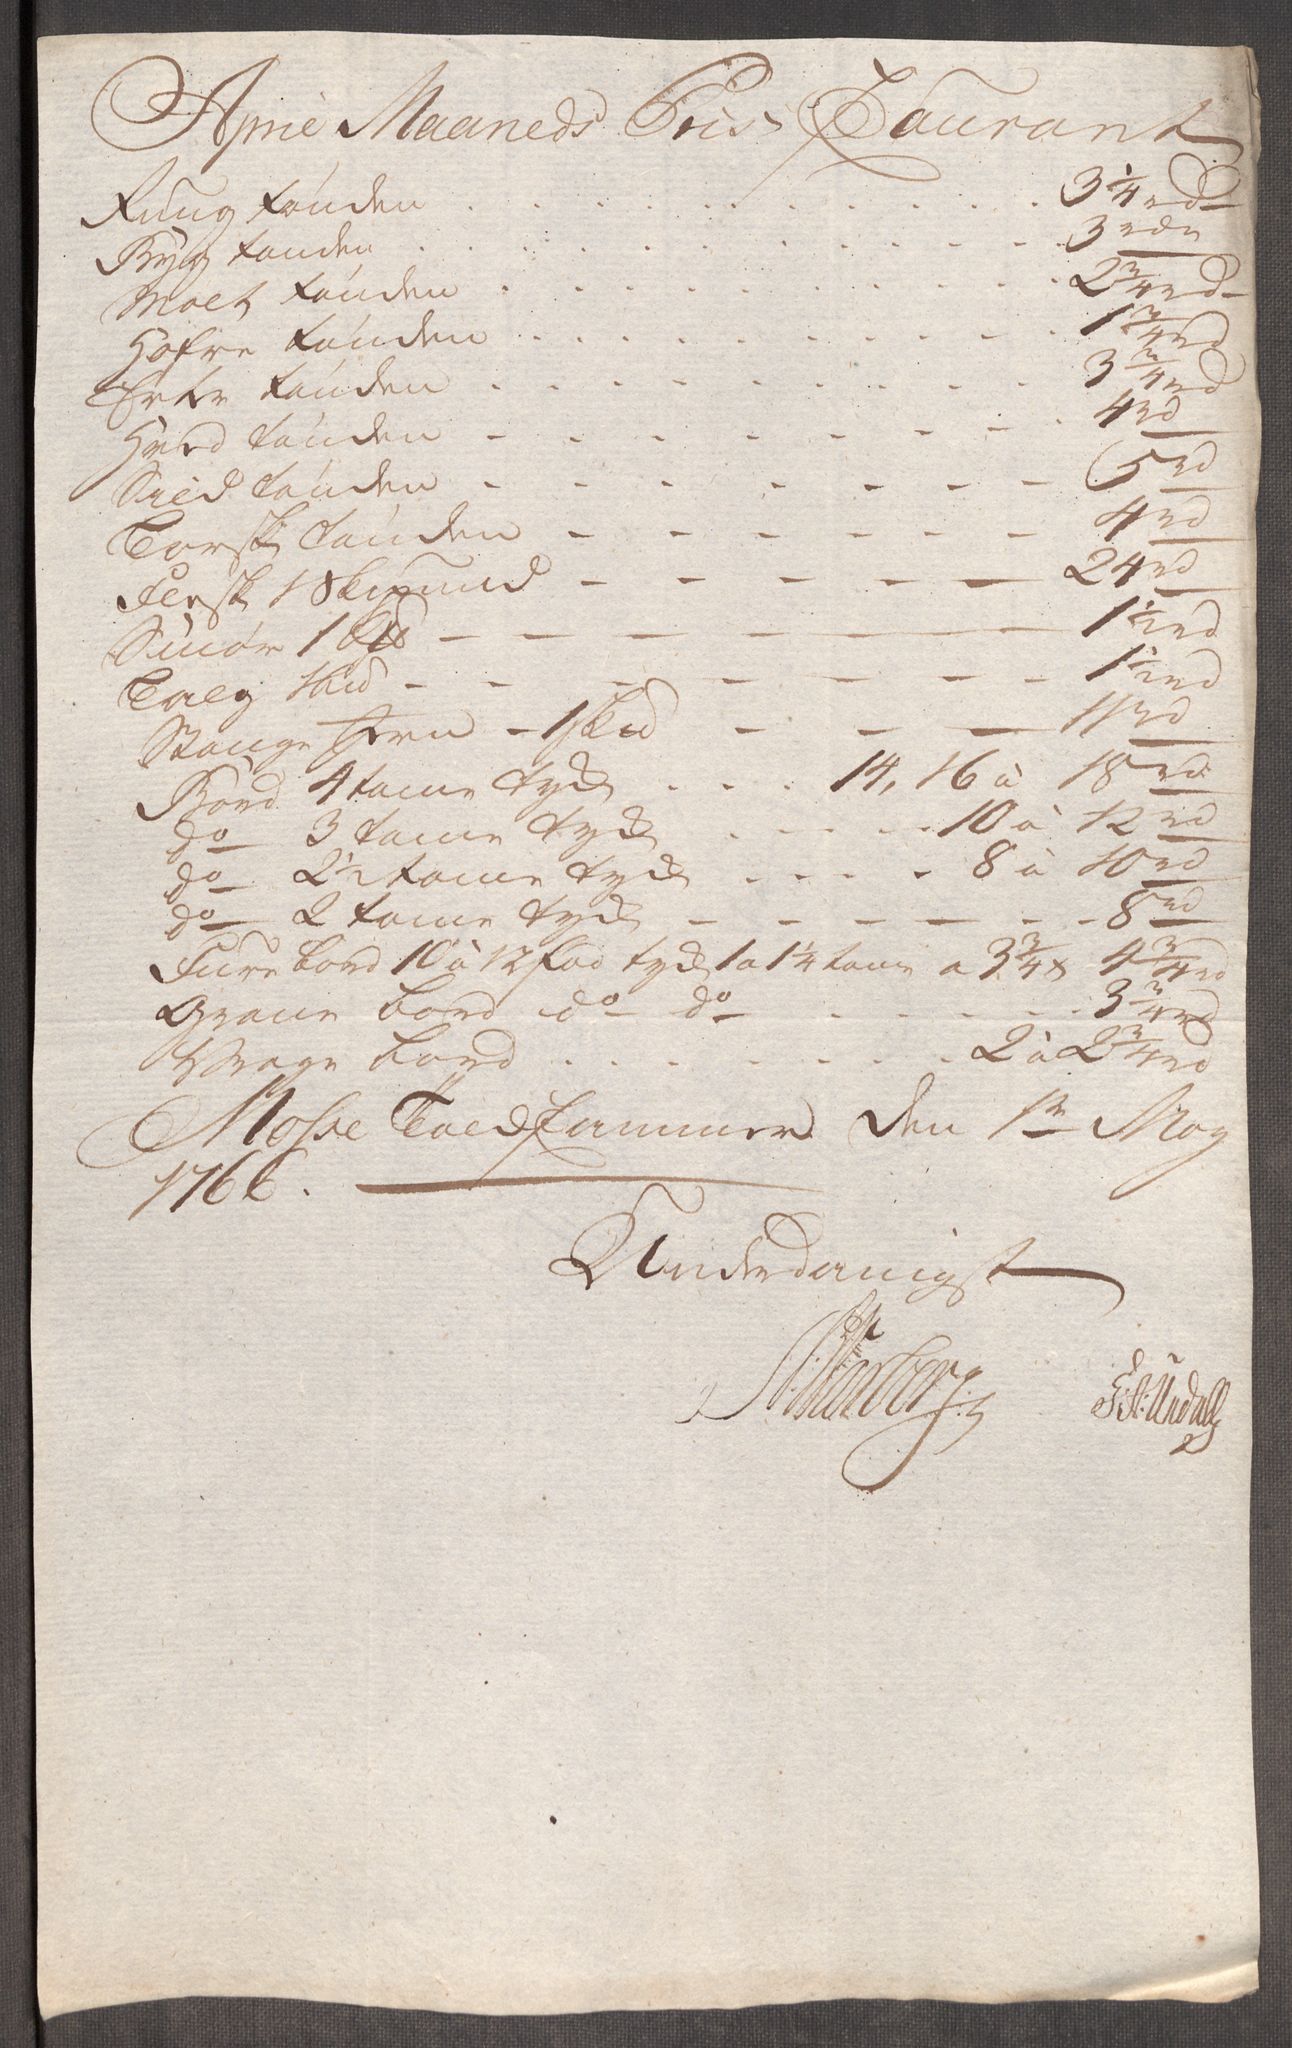 Aprie Maaneds Priis Courant
Rung tønden . . . . . . . 3 1/4 rd
Byg tønden . . . . . . . 3 rdr
Malt tønden . . . . . . . 2 3/4 rd
Hafre tønden . . . . . . . 1 3/4 rd
Erter tønden . . . . . . . 3 3/4 rd
Hvid tønden - . . . . . . 4 rd
Siild tønden - . . . . . . 5 rd
Torsk tønden - - - - - - 4 rd
Flesk 1 Skipund - - - - - 24 rd
Smør 1 - - - - - - 1 1/2 rd
Talg - - - - - - - 1 1/2 rd
Stange Jern - 1 - - - 11 rd
Bord 4 tome tyk . . . 14, 16 à 18 rd
do 3 tome tyk . . . . . 10 à 12 rd
do 2 1/2 tome tyk . . . . 8 à 10 rd
do 2 tome tyk - - - - - - 8 rd
Fure bord 10 à 12 fod tyk 1 a 1 1/4 tome a 3 3/4 4 3/4 rd
Grane bord do do . . . . . 3 3/4 rd
Vrage bord . . . . . . . 2 à 2 3/4 rd
Mosse Toldkammer den 1te May
1766.
Underdanigst